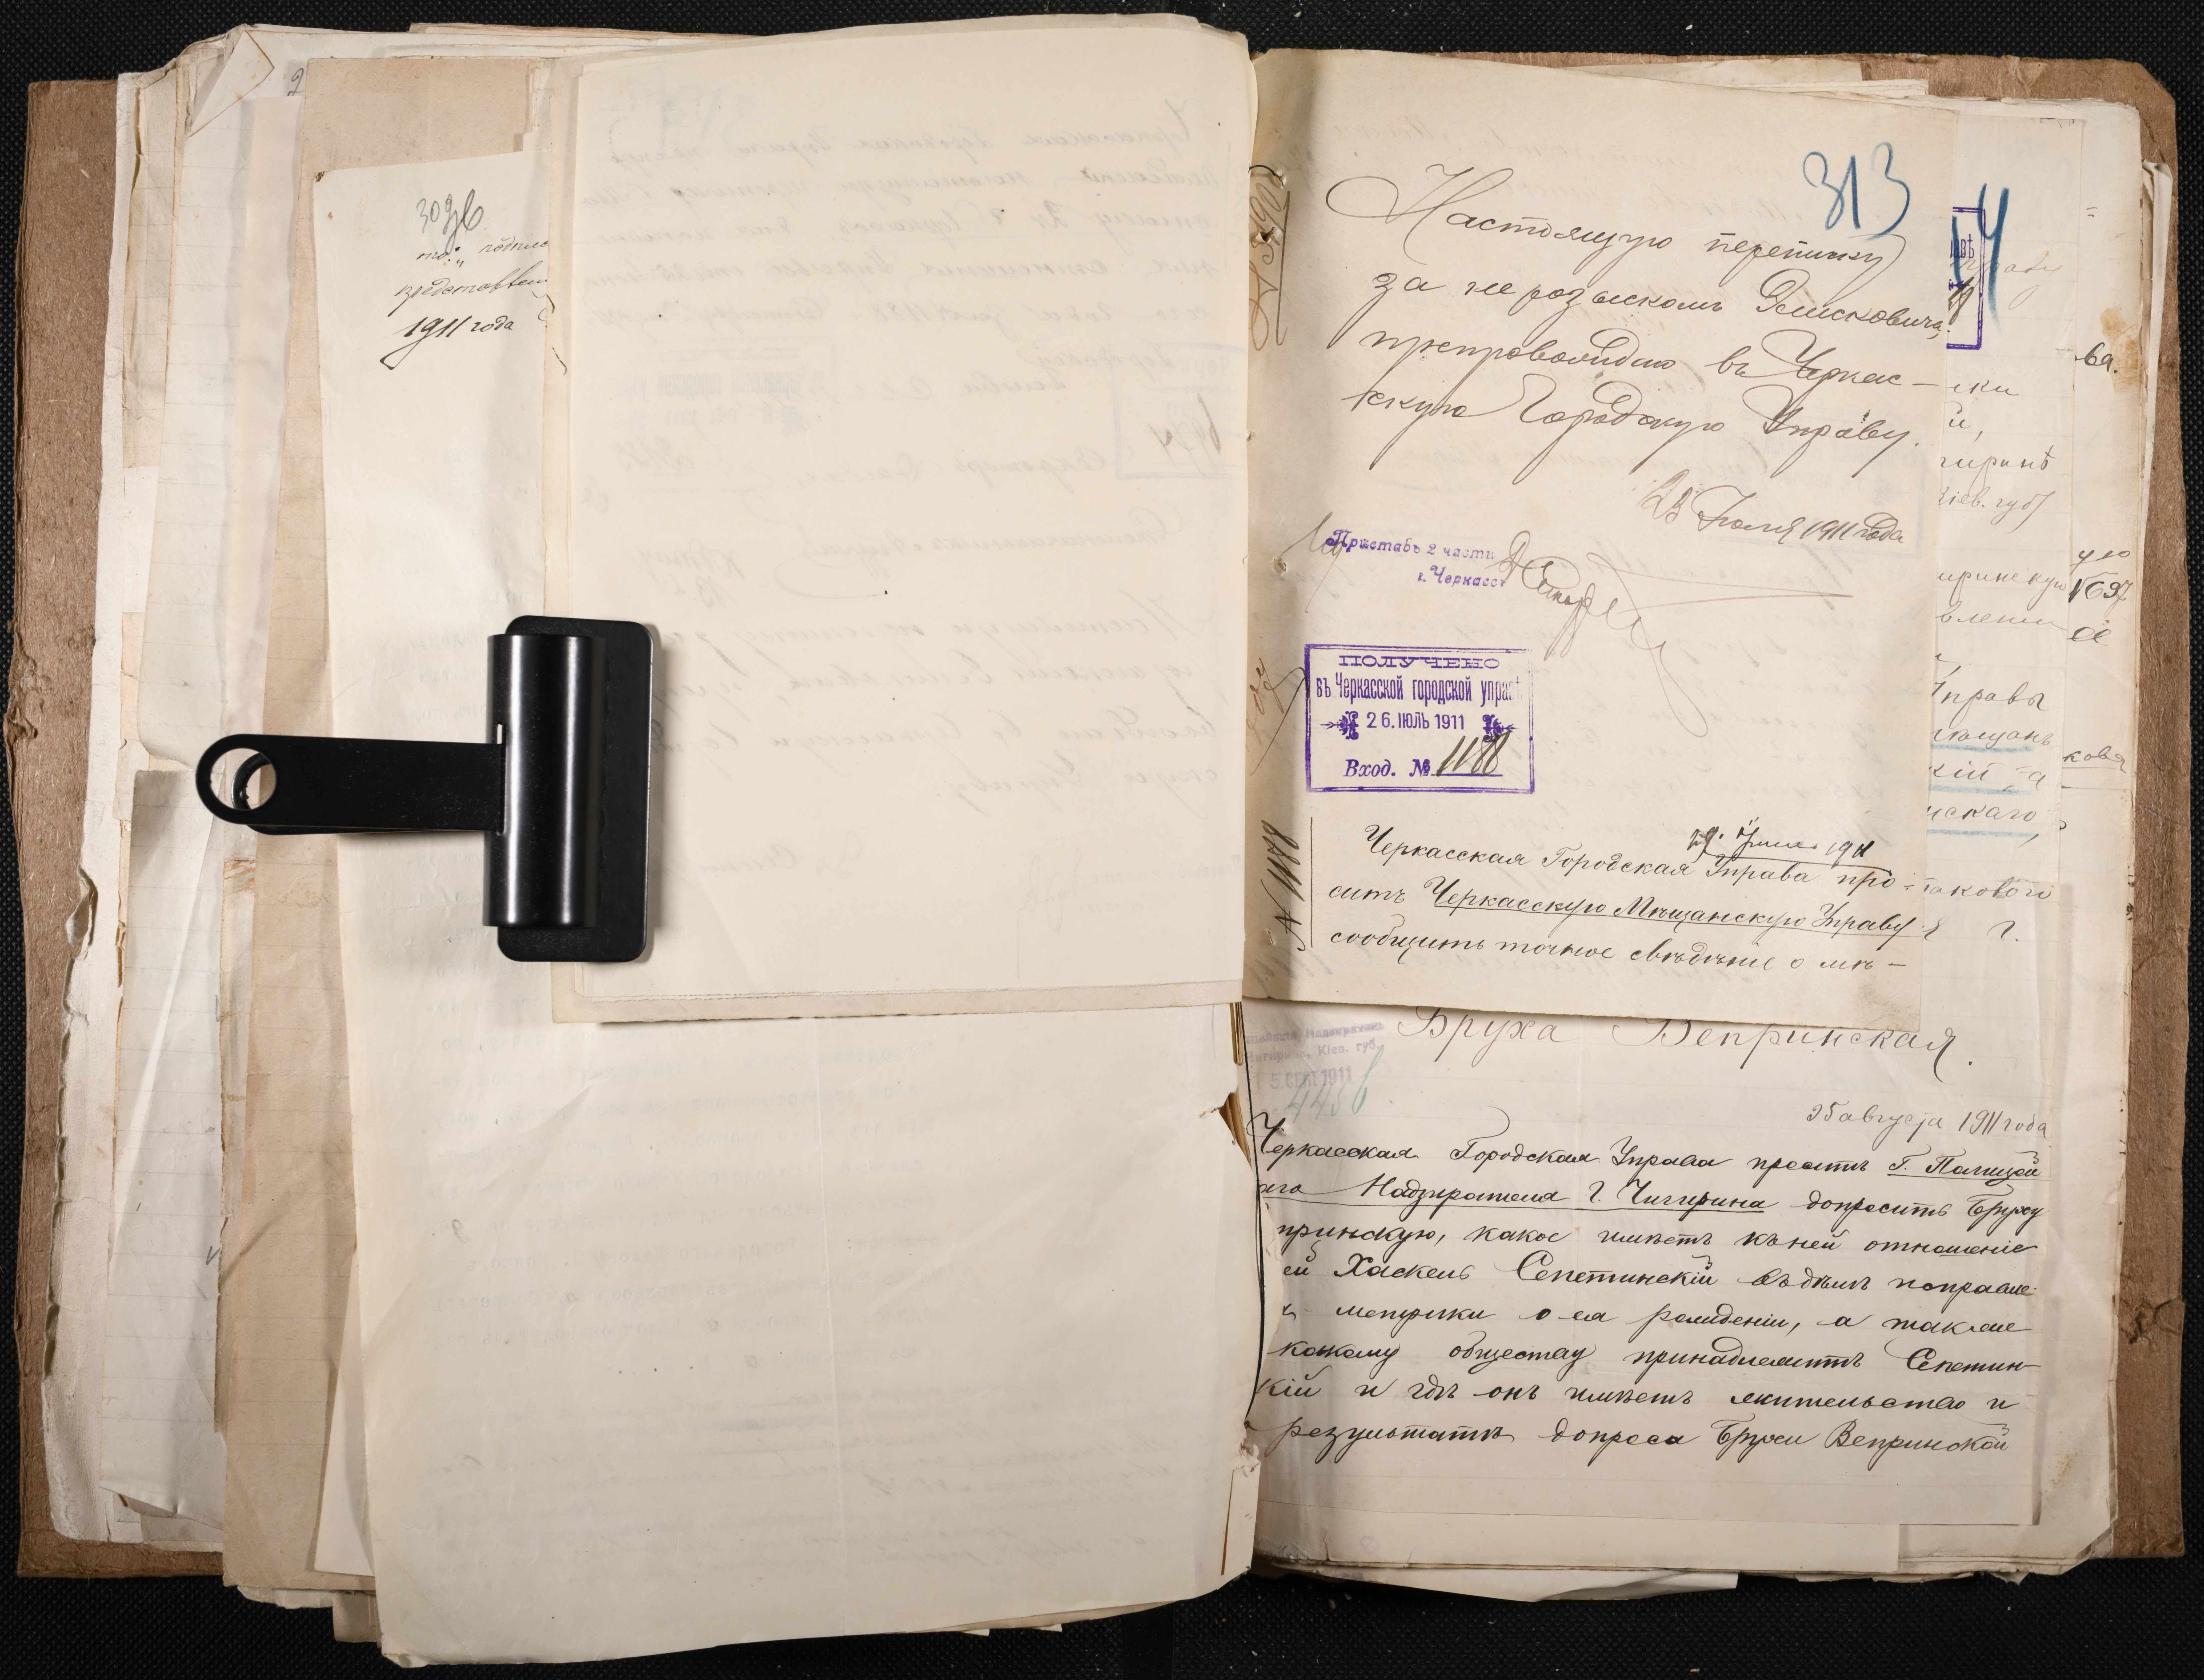 309
представлен
1911 года
313
Настоящую переписку
за не розыскомъ
препровождаю въ Черкас-
скую Городскую Управу.
25 Июля 1911 года
Приставъ 2 части
г. Черкассъ
ПОЛУЧЕНО
въ Черкасской городской управѣ
26. ІЮЛЬ 1911
Вход. № 1188
№ 1188
1911
Черкасская Городская Управа про-
ситъ Черкасскую Мѣщанскую Управу
сообщить точное свѣдѣніе о мѣ-
Бруха Вепринская.
5 СЕН 1911
4456
25 августа 1911 года
Черкасская Городская Управа проситъ Г. Полицей
аго Надзирателя Г. Чигирина допросить Бруху
принскую, какое имѣетъ къ ней отношеніе
ей Хаскель Сепетинскій въ дѣлѣ поправле
и метрики о ея рожденіи, а также
какому обществу принадлежитъ Сепетин-
кій и гдѣ онъ имѣетъ жительство и
результатъ допроса Брухи Вепринской
чиринѣ
Кіев. губ
иринскую
влении
Управы
мѣщанъ
кій
искаго
такового
Г.
ва.
ую
кова